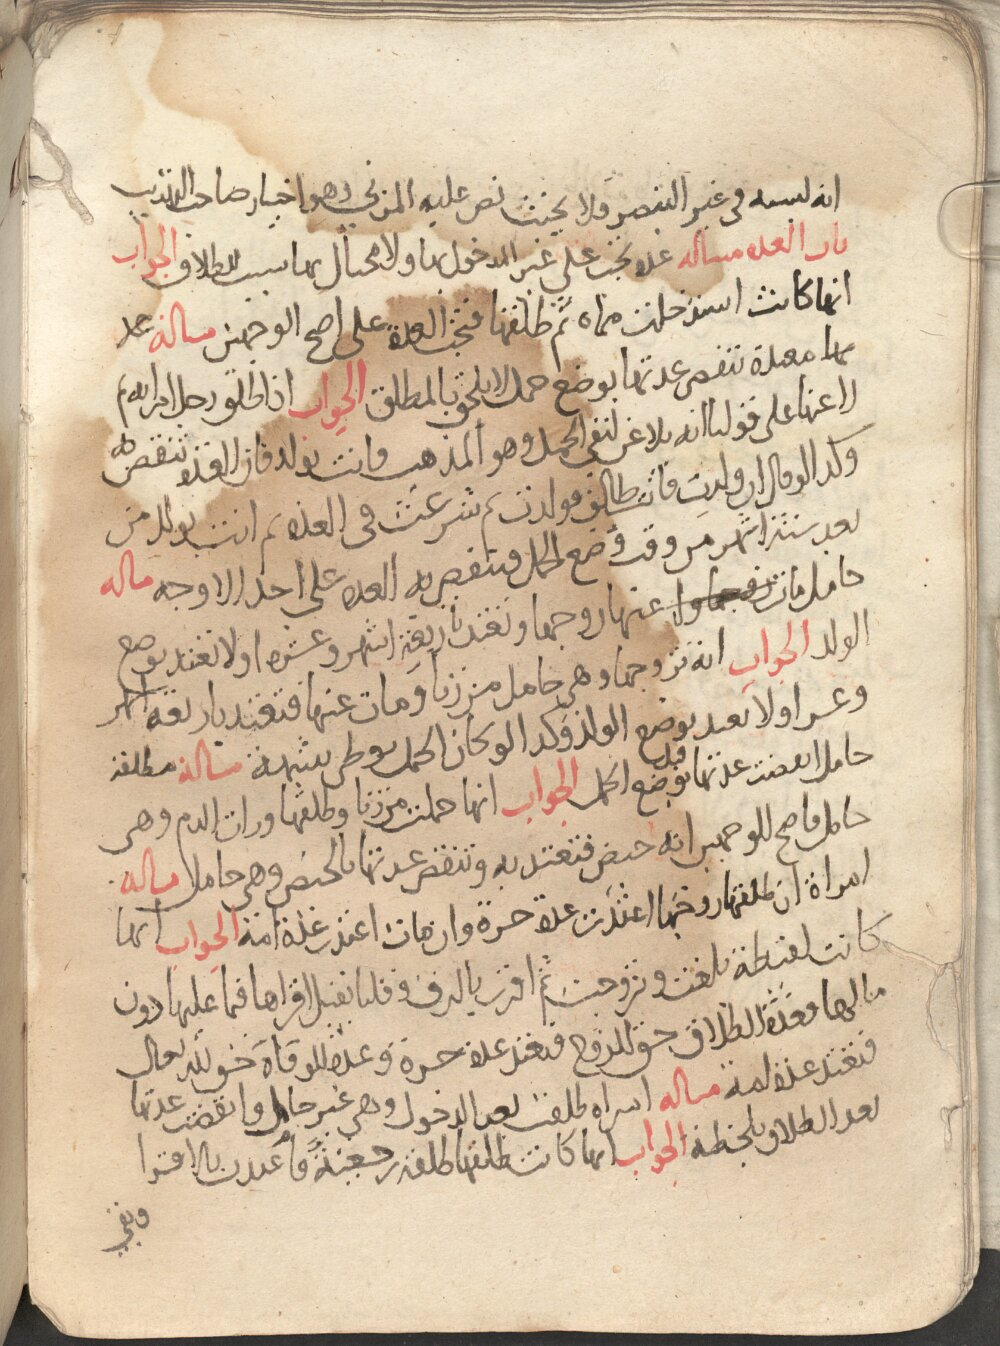 انه لبسه في غير القميص ولا يحنث نص عليه المزني وهو اختيار صاحب التقريب
باب العده مساله عدة تجب على غير المدخول بها ولا محبال بها سبب للطلاق الجواب
انها كانت استدخلت مماه ثم طلقها فتجب العدة على اصح الوجهين مسالة عد
بها معتدة تنقضي عدتها بوضع حمل لا يلحق بالمطلق الجواب اذا طلق رجل امراته ثم
لاعنها على قولنا انه يلاعن لنفي الحمل وهو المذهب فاتت بولد فان العده تنقضي به
وكذا لو قال ان ولدت فانت طالق فولدت ثم شرعت في العده ثم اتت بولد من
بعد ستة اشهر من وقت وضع الحمل فتنقضي به العده على احد الاوجه مساله
حامل مات عنها زوجها وتعتد باربعة اشهر وعشرا ولا تعتد بوضع
الولد الجواب انه تزوجها وهي حامل من زنا ومات عنها فتعتد باربعة اشهر
وعشرا ولا تعتد بوضع الولد وكذا لو كان الحمل بوطي بشبهة مسالة مطلقة
حامل انقضت عدتها قبل بوضع الحمل الجواب انها حملت من زنا وطلقها ورات الدم وهي
حامل فاصح للوجهين انه حيض فتعتد به وتنقضي عدتها بالحيض وهي حامل مساله
امراة ان طلقها زوجها اعتدت عدة حرة وان مات اعتدت عدة امة الجواب انها
كانت لقيطة بلغت وتزوجت ثم اقرت بالرق وقلنا نقبل اقراها فيما عليها دون
مالها فعدة الطلاق حق للزوج فتعتد عدة حرة وعدة للوفاة حق لله تعالى
فتعتد عدة امة مساله امراة طلقت بعد الدخول وهي غير حامل وانقضت عدتها
بعد الطلاق بلحظة الجواب انها كانت طلقها طلقة رجعية فاعتدت بالاقرا
وبقي